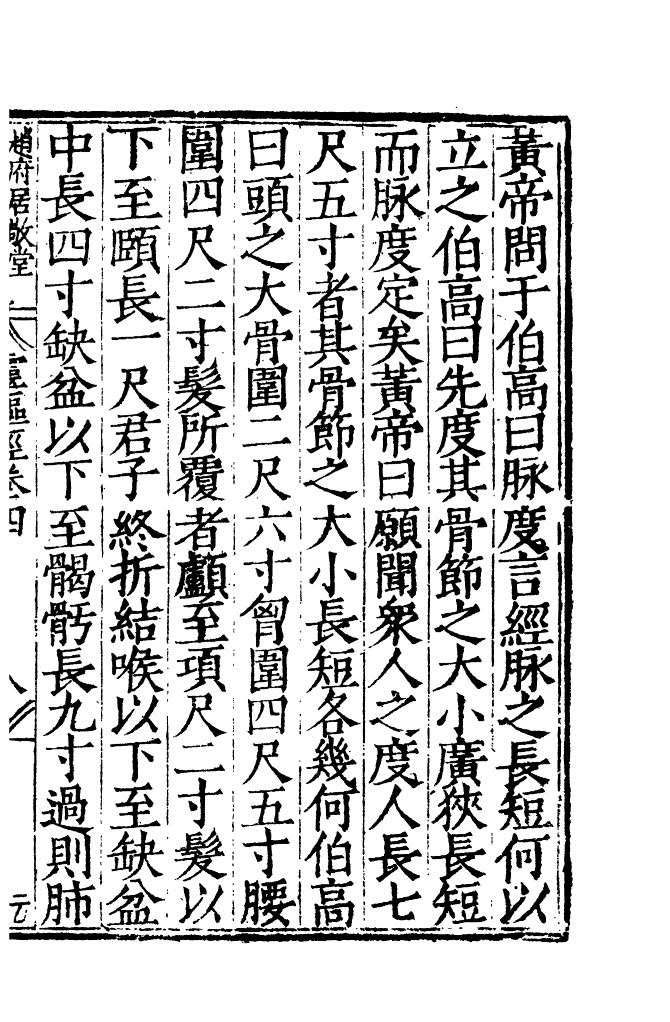 黃帝問于伯高曰脉度言經脉之長短何以
立之伯高曰先度其骨節之大小廣狹長短
而脉度定矣黃帝曰願聞衆人之度人長七
尺五寸者其骨節之大小長短各幾何伯高
曰頭之大骨圍二尺六寸胷圍四尺五寸腰
圍四尺二寸髮所覆者顱至項尺二寸髮以
下至頤長一尺君子終折結喉以下至缺盆
中長四寸缺盆以下至𩩲骬長九寸過則肺
趙府居敬堂 靈樞經卷四